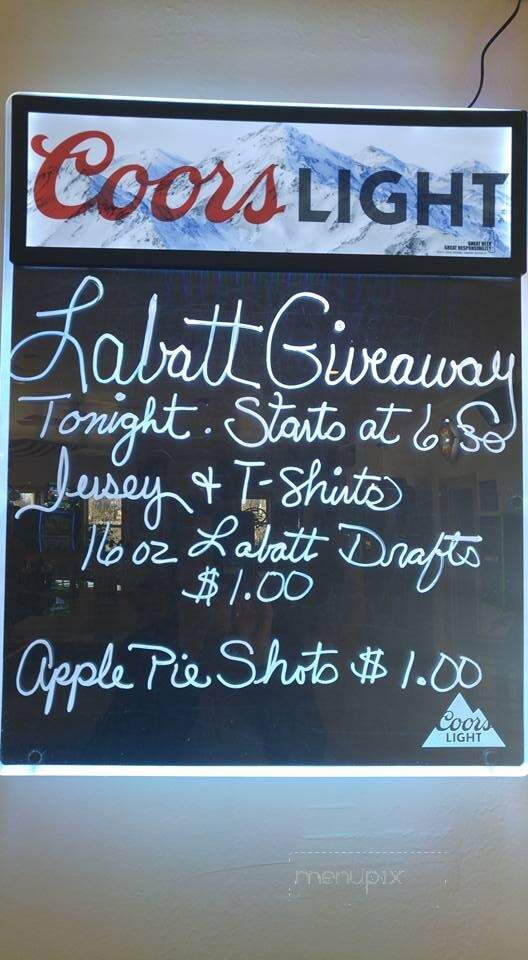 Coors LIGHT
GREAT BEER
GREAT RESPONSIBILITY
Labatt Giveaway
Tonight. Starts at 6:30
Jersey & T-Shirts
16 oz Labatt Drafts
$1.00
Apple Pie Shots $1.00
Coors
LIGHT
menupix